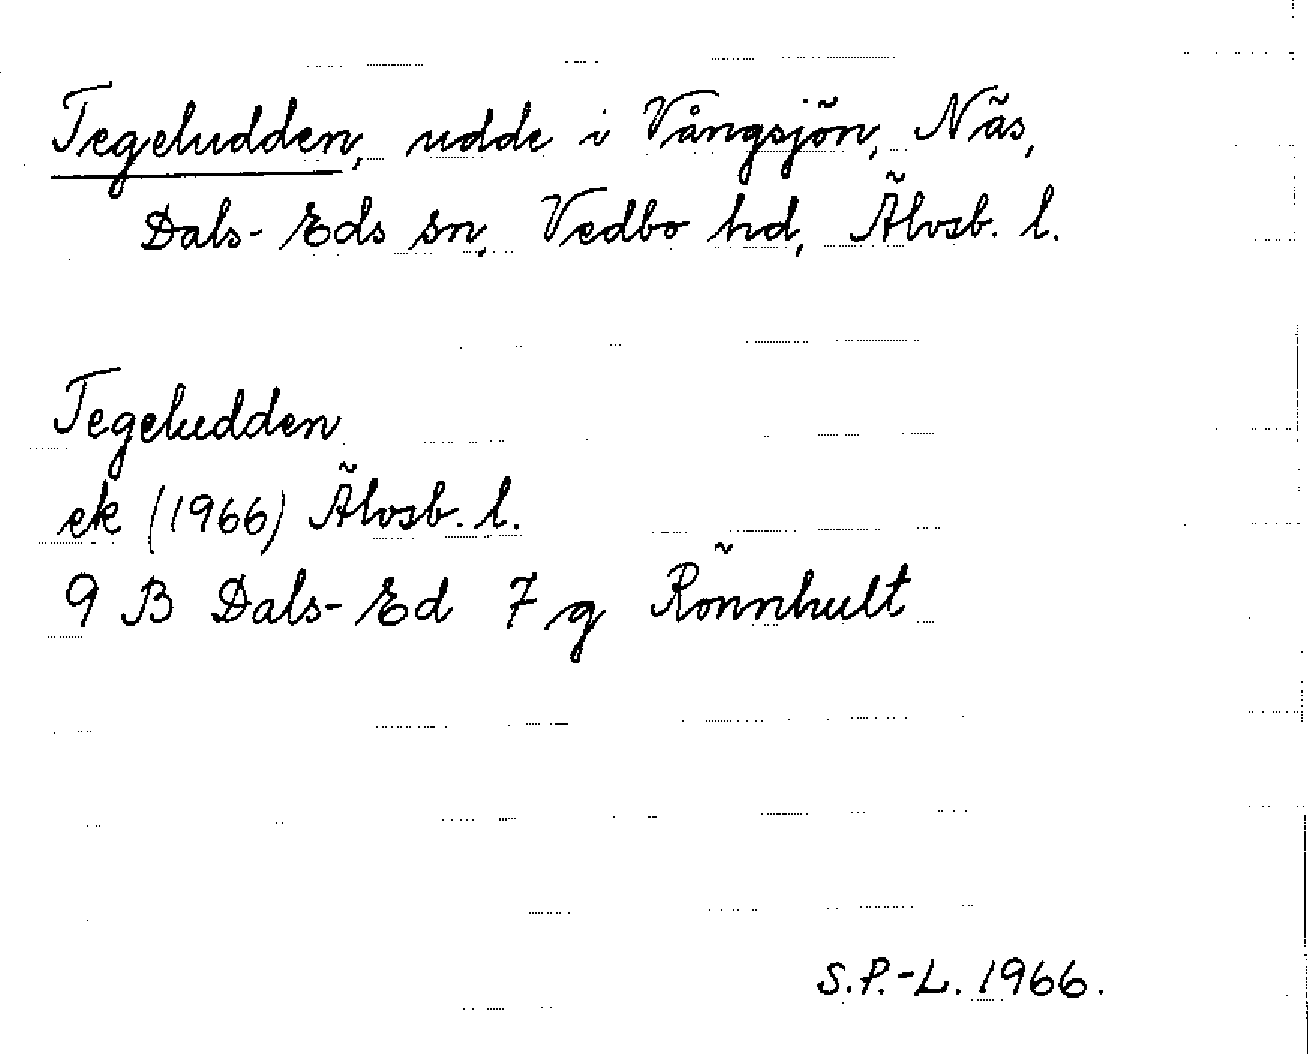 Tegeludden, udde i Vångsjön, Näs,
Dals-Eds sn, Vedbo hd, Älvsb. l.
Tegeludden
ek (1966) Älvsb. l.
9 B Dals-Ed 7 g Rönnhult
S.P.-L. 1966.